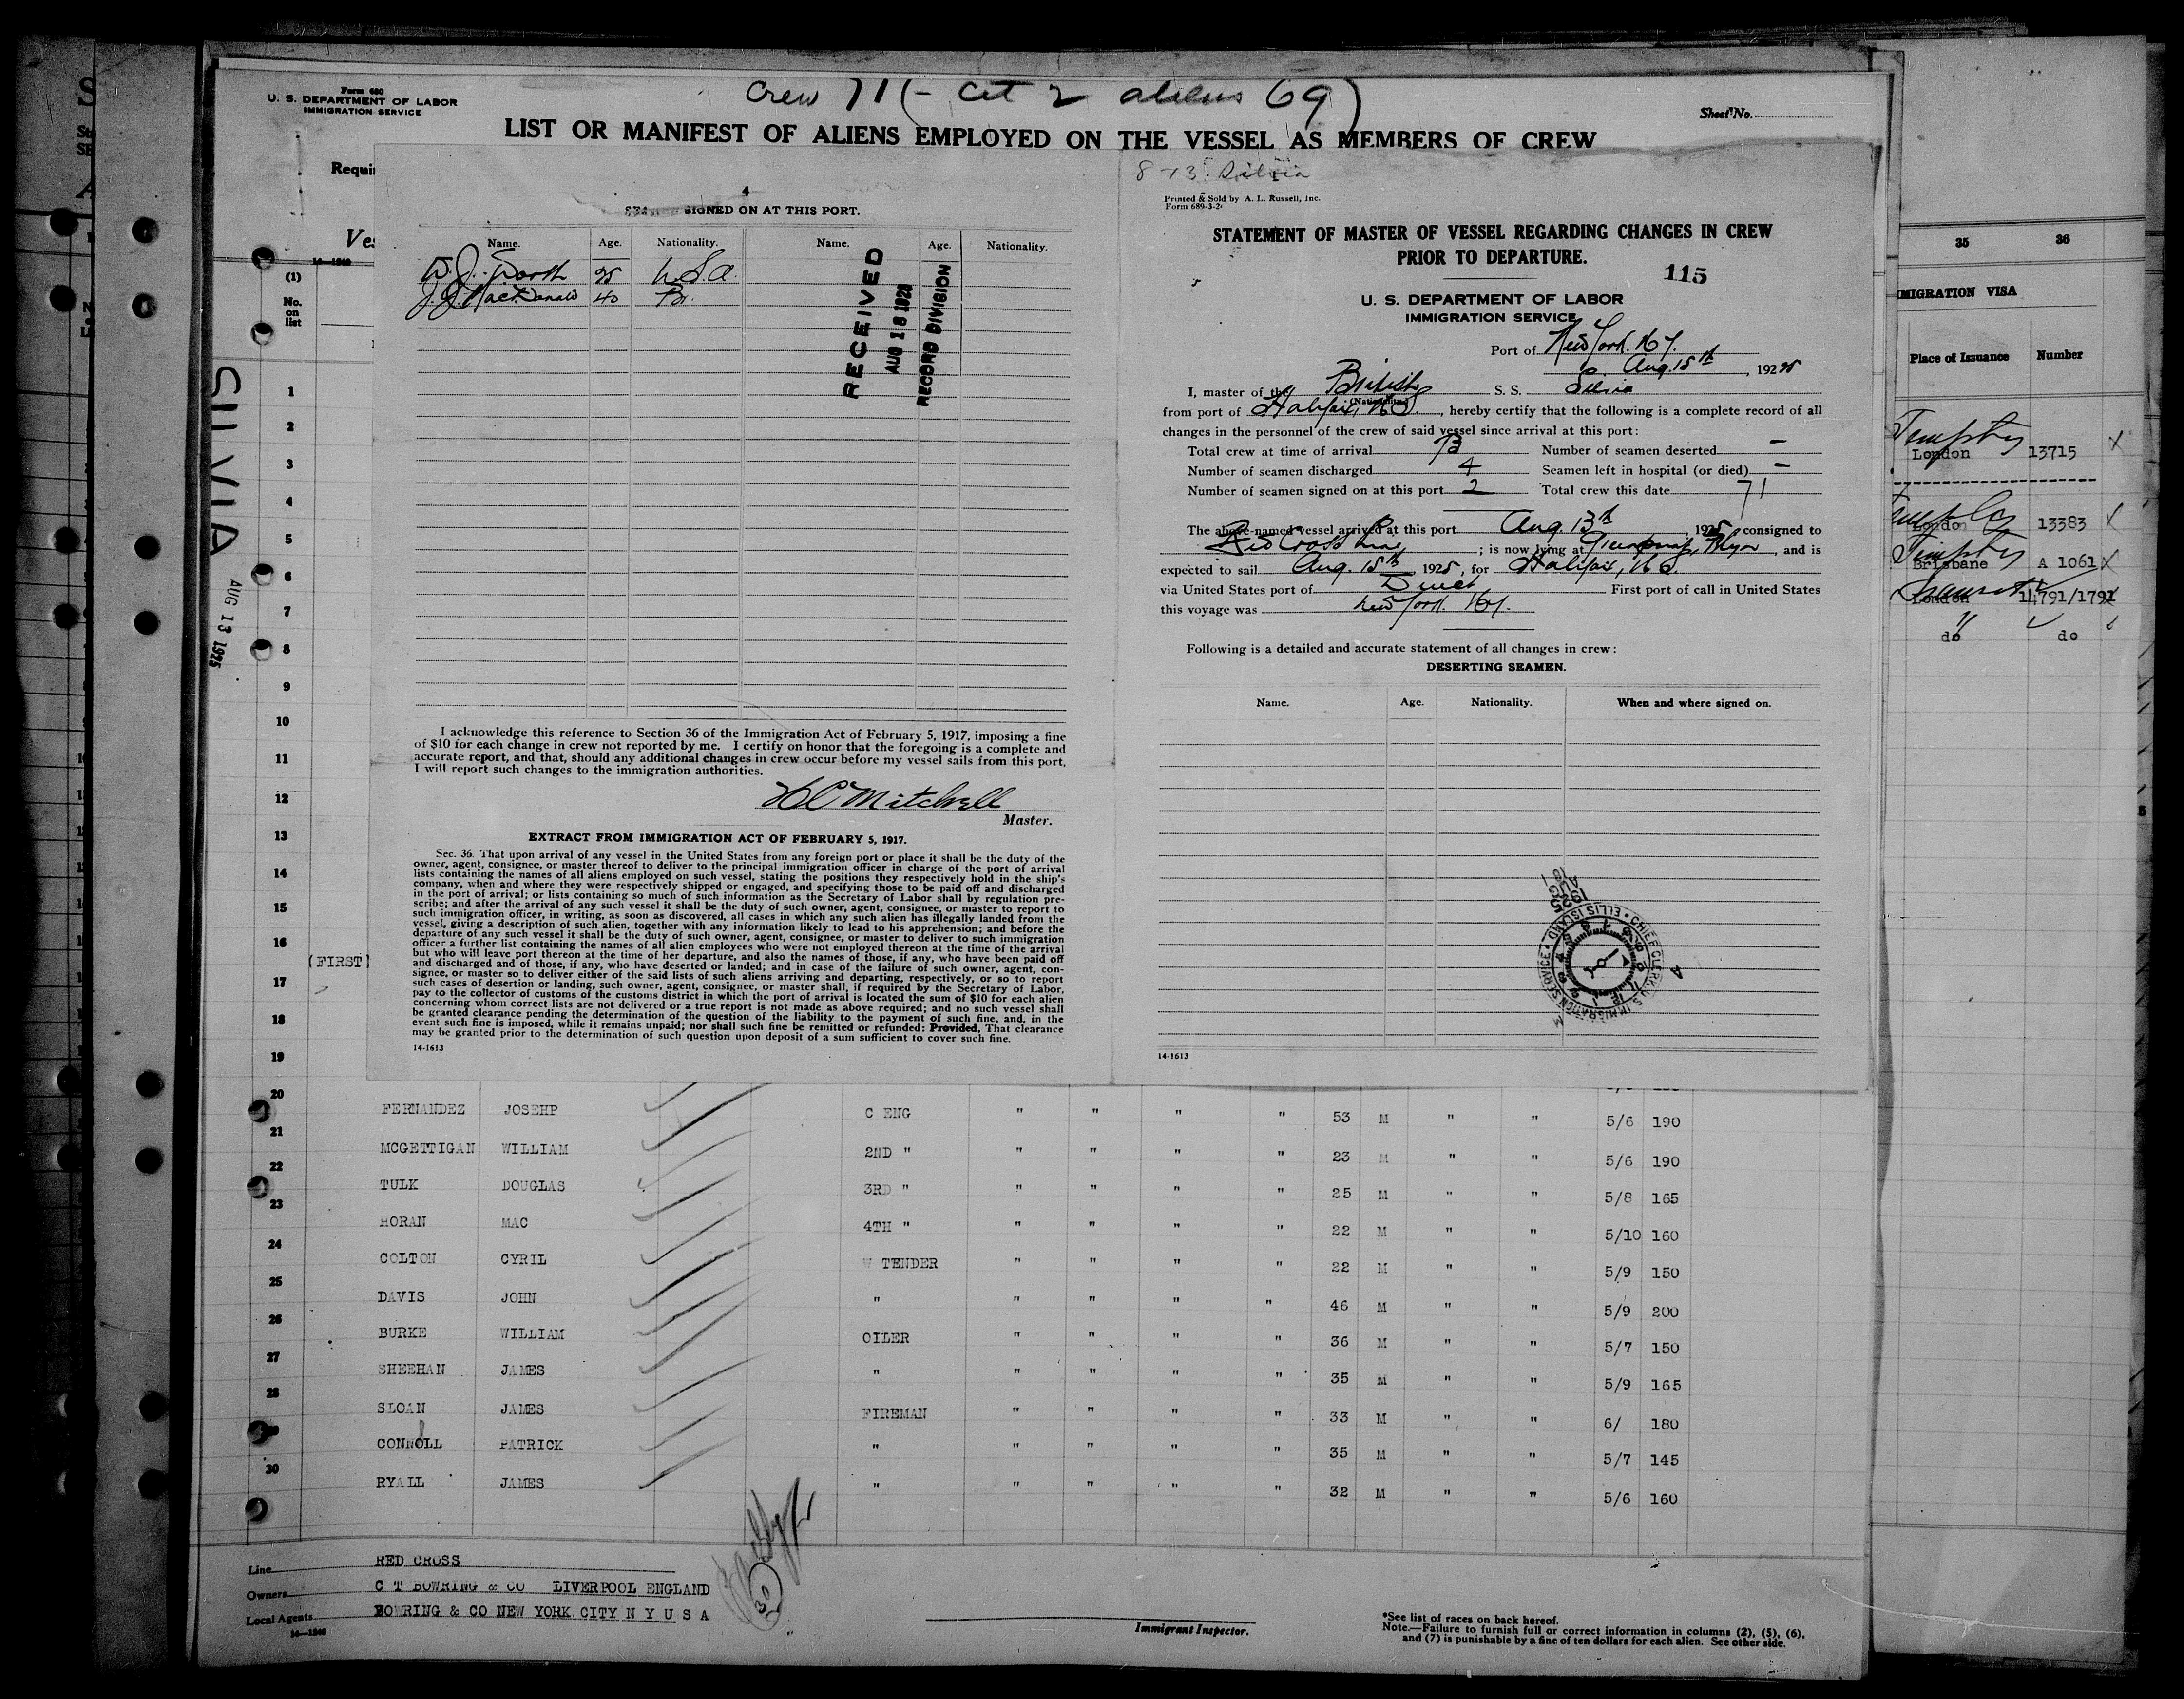 Crew 71 (- Cit 2 aliens 69)
Form 680
U. S. DEPARTMENT OF LABOR
IMMIGRATION SERVICE
Sheet No.
LIST OR MANIFEST OF ALIENS EMPLOYED ON THE VESSEL AS MEMBERS OF CREW
Requi
Ves
14-1240
(1)
No. on list
SILVIA
AUG 13 1925
4
SIGNED ON AT THIS PORT.
Name. Age. Nationality. Name. Age. Nationality.
W. J. North 25 U.S.A.
J. J. MacDonald 40 Br.
RECEIVED
AUG 18 192
RECORD DIVISION
I acknowledge this reference to Section 36 of the Immigration Act of February 5, 1917, imposing a fine
of $10 for each change in crew not reported by me. I certify on honor that the foregoing is a complete and
accurate report, and that, should any additional changes in crew occur before my vessel sails from this port,
I will report such changes to the immigration authorities.
H C Mitchell
Master.
EXTRACT FROM IMMIGRATION ACT OF FEBRUARY 5, 1917.
Sec. 36. That upon arrival of any vessel in the United States from any foreign port or place it shall be the duty of the
owner, agent, consignee, or master thereof to deliver to the principal immigration officer in charge of the port of arrival
lists containing the names of all aliens employed on such vessel, stating the positions they respectively hold in the ship's
company, when and where they were respectively shipped or engaged, and specifying those to be paid off and discharged
in the port of arrival; or lists containing so much of such information as the Secretary of Labor shall by regulation pre-
scribe; and after the arrival of any such vessel it shall be the duty of such owner, agent, consignee, or master to report to
such immigration officer, in writing, as soon as discovered, all cases in which any such alien has illegally landed from the
vessel, giving a description of such alien, together with any information likely to lead to his apprehension; and before the
departure of any such vessel it shall be the duty of such owner, agent, consignee, or master to deliver to such immigration
officer a further list containing the names of all alien employees who were not employed thereon at the time of the arrival
but who will leave port thereon at the time of her departure, and also the names of those, if any, who have been paid off
and discharged and of those, if any, who have deserted or landed; and in case of the failure of such owner, agent, con-
signee, or master so to deliver either of the said lists of such aliens arriving and departing, respectively, or so to report
such cases of desertion or landing, such owner, agent, consignee, or master shall, if required by the Secretary of Labor,
pay to the collector of customs of the customs district in which the port of arrival is located the sum of $10 for each alien
concerning whom correct lists are not delivered or a true report is not made as above required; and no such vessel shall
be granted clearance pending the determination of the question of the liability to the payment of such fine, and, in the
event such fine is imposed, while it remains unpaid; nor shall such fine be remitted or refunded: Provided, That clearance
may be granted prior to the determination of such question upon deposit of a sum sufficient to cover such fine.
14-1613
8-13 Silvia
Printed & Sold by A. L. Russell, Inc.
Form 689-3-2
STATEMENT OF MASTER OF VESSEL REGARDING CHANGES IN CREW
PRIOR TO DEPARTURE.
115
U. S. DEPARTMENT OF LABOR
IMMIGRATION SERVICE
Port of New York. N.Y.
Aug. 15th, 1925
I, master of the British S. S. Silvia
(Nationality)
from port of Halifax, N.S., hereby certify that the following is a complete record of all
changes in the personnel of the crew of said vessel since arrival at this port:
Total crew at time of arrival 73 Number of seamen deserted -
Number of seamen discharged 4 Seamen left in hospital (or died) -
Number of seamen signed on at this port 2 Total crew this date 71
The above-named vessel arrived at this port Aug. 13th, 1925, consigned to
Red Cross Line; is now lying at Greenpoint, Bklyn, and is
expected to sail Aug. 15th, 1925, for Halifax, N.S.
via United States port of Direct First port of call in United States
this voyage was New York. N.Y.
Following is a detailed and accurate statement of all changes in crew:
DESERTING SEAMEN.
Name. Age. Nationality. When and where signed on.
CHIEF CLERK, U.S. IMMIGRATION SERVICE • ELLIS ISLAND
AUG 1925
14-1613
35 36
MIGRATION VISA
Place of Issuance Number
London 13715 X
London 13383
Brisbane A 1061 X
London 14791/1791
do do
1
2
3
4
5
6
7
8
9
10
11
12
13
14
15
16
(FIRST)
17
18
19
20 FERNANDEZ JOSEHP C ENG " " " " 53 M " " 5/6 190
21 MCGETTIGAN WILLIAM 2ND " " " " " 23 M " " 5/6 190
22 TULK DOUGLAS 3RD " " " " " 25 M " " 5/8 165
23 HORAN MAC 4TH " " " " " 22 M " " 5/10 160
24 COLTON CYRIL W TENDER " " " " 22 M " " 5/9 150
25 DAVIS JOHN " " " " " 46 M " " 5/9 200
26 BURKE WILLIAM OILER " " " " 36 M " " 5/7 150
27 SHEEHAN JAMES " " " " " 35 M " " 5/9 165
28 SLOAN JAMES FIREMAN " " " " 33 M " " 6/ 180
CONNOLL PATRICK " " " " " 35 M " " 5/7 145
30 RYALL JAMES " " " " " 32 M " " 5/6 160
Line RED CROSS
Owners C T BOWRING & CO LIVERPOOL ENGLAND
Local Agents BOWRING & CO NEW YORK CITY N Y U S A
14-1240
30
Immigrant Inspector.
*See list of races on back hereof.
Note.—Failure to furnish full or correct information in columns (2), (5), (6),
and (7) is punishable by a fine of ten dollars for each alien. See other side.